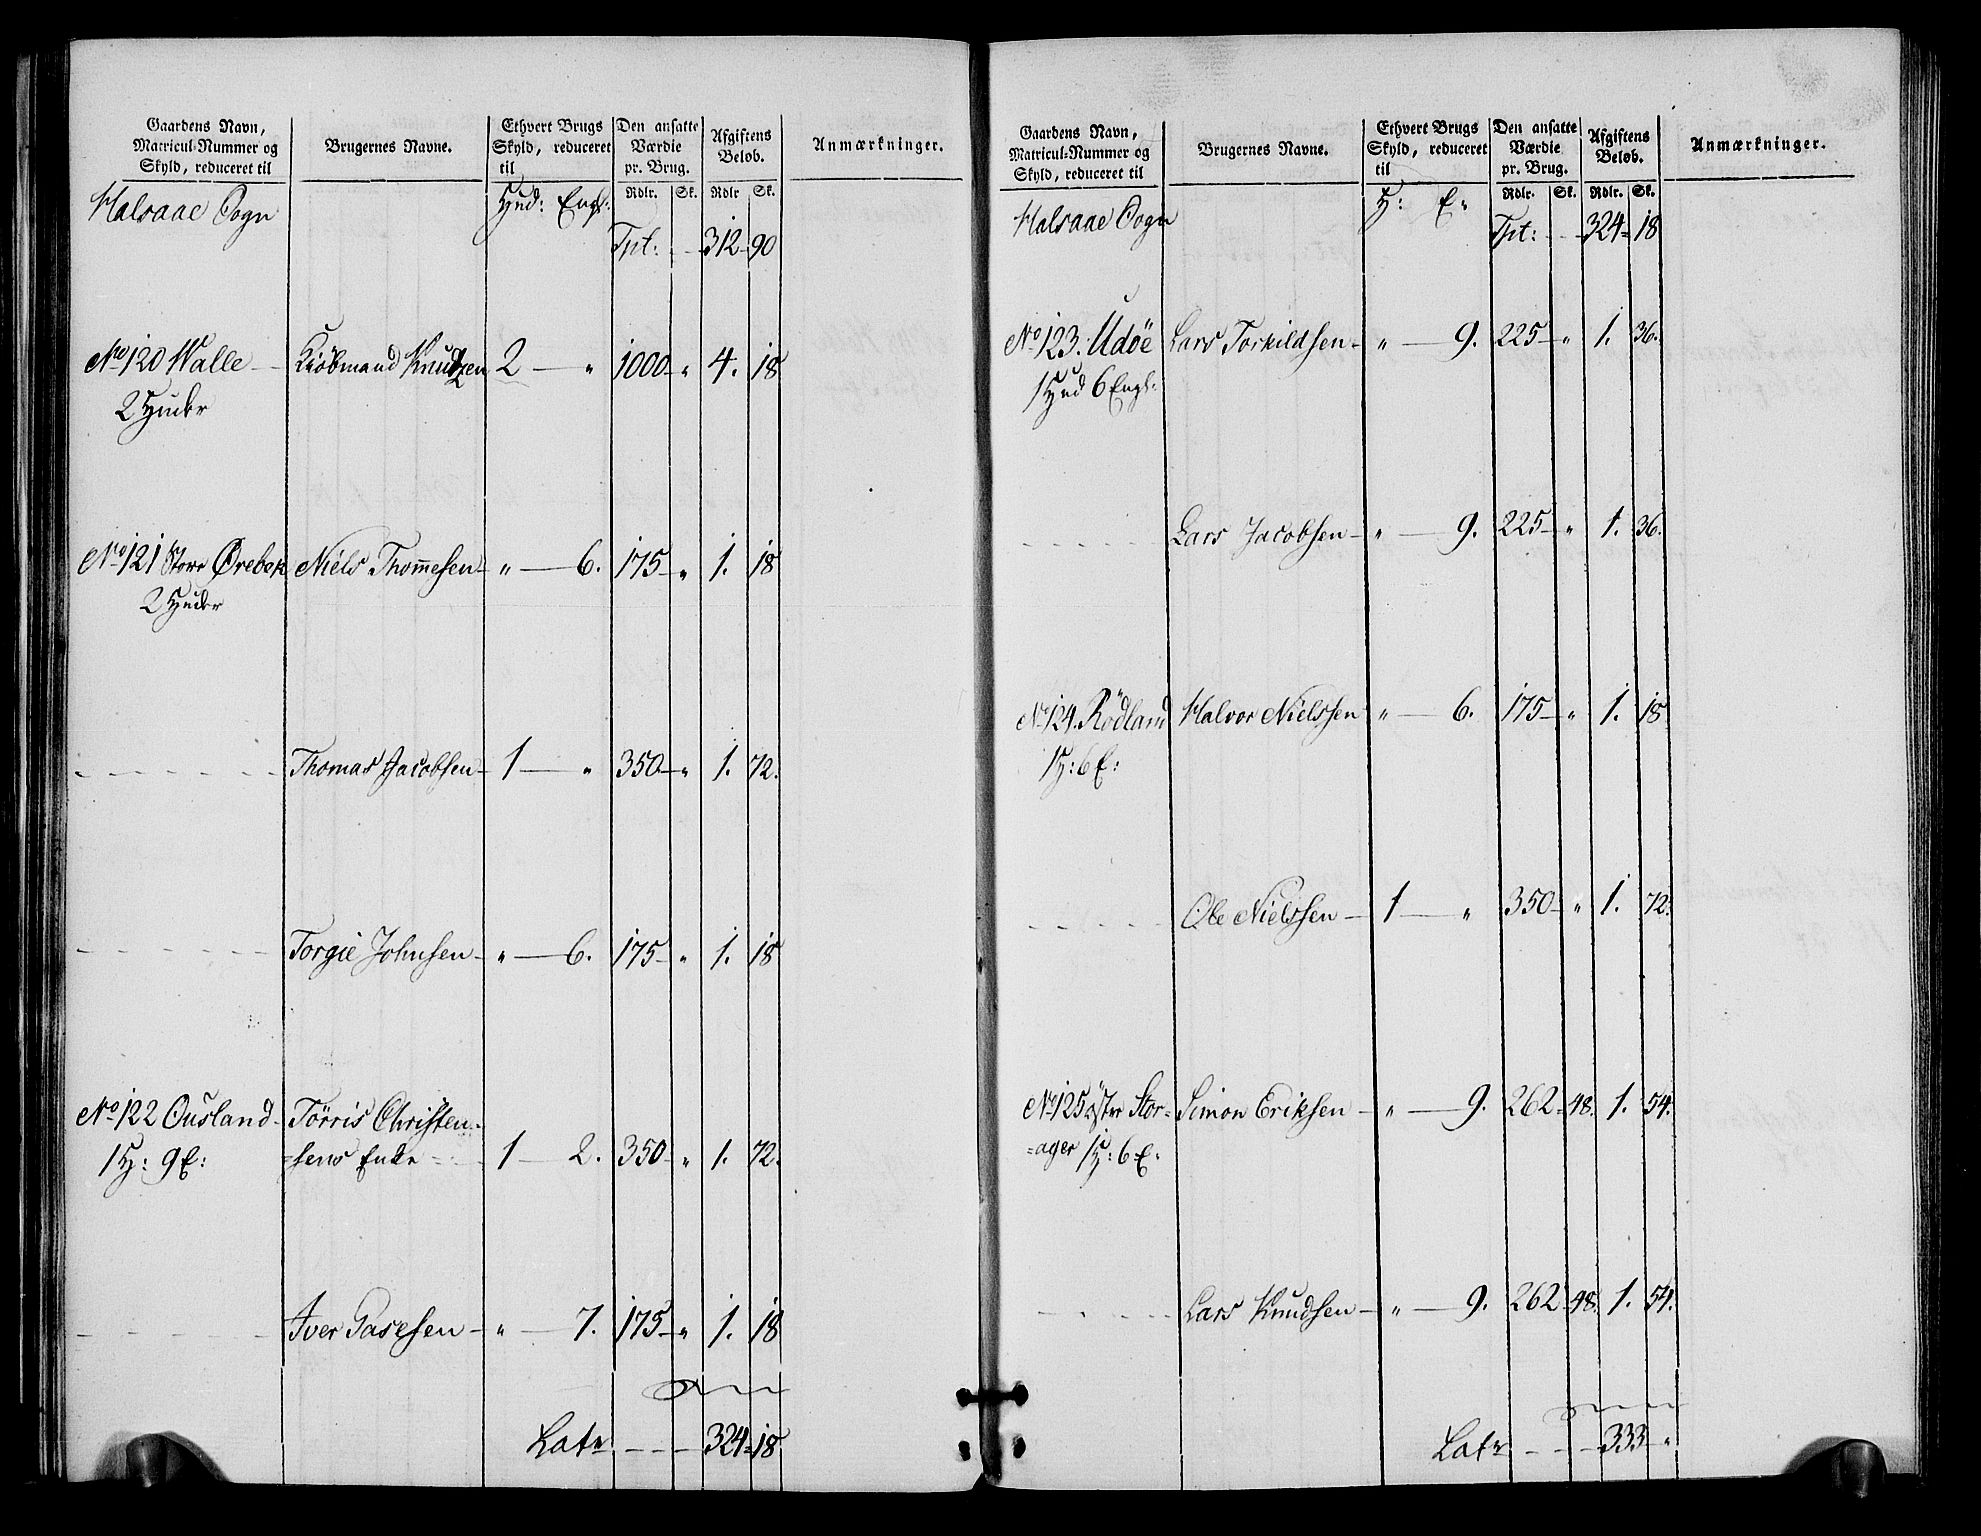 Gaardens Navn, Matricul-Nummer og Skyld, reduceret til
Brugernes Navne.
Ethvert Brugs Skyld, reduceret til
Den ansatte Værdie pr. Brug.
Afgiftens Beløb.
Anmærkninger.
Rdlr. Sk. Rdlr Sk.
Halsaae Sogn Hud: Engl:
Tpt: 312 90
No 120 Walle Kiöbmand Knudtzen 2 " 1000 " 4. 18
2 Huder
No 121 Store Ørebek Niels Thommesen " 6. 175 " 1. 18
2 Huder
Thomas Jacobsen 1 " 350 " 1. 72.
Torgie Johnsen " 6. 175 " 1. 18
No 122 Ousland Törris Christen=
1 H: 9 E: =sens Enke 1 2. 350 " 1. 72.
Iver " 7. 175 " 1. 18
Latr 324 = 18
Gaardens Navn, Matricul-Nummer og Skyld, reduceret til
Brugernes Navne.
Ethvert Brugs Skyld, reduceret til
Den ansatte Værdie pr. Brug.
Afgiftens Beløb.
Anmærkninger.
Rdlr. Sk. Rdlr. Sk.
Halsaae Sogn H: E:
Tpt: 324 = 18
No 123. Udöe Lars Torkildsen " 9. 225 " 1. 36.
1 Hud 6 Engl:
Lars Jacobsen " 9. 225 " 1. 36.
No 124. Rödland Halvor Nielssen " 6. 175 " 1. 18
1 H: 6 E:
Ole Nielssen 1 " 350 " 1. 72.
No 125 öster Stor= Simon Eriksen " 9. 262 48. 1. 54.
=ager 1 H: 6 E:
Lars Knudsen " 9. 262 48. 1. 54.
Latr 333 "